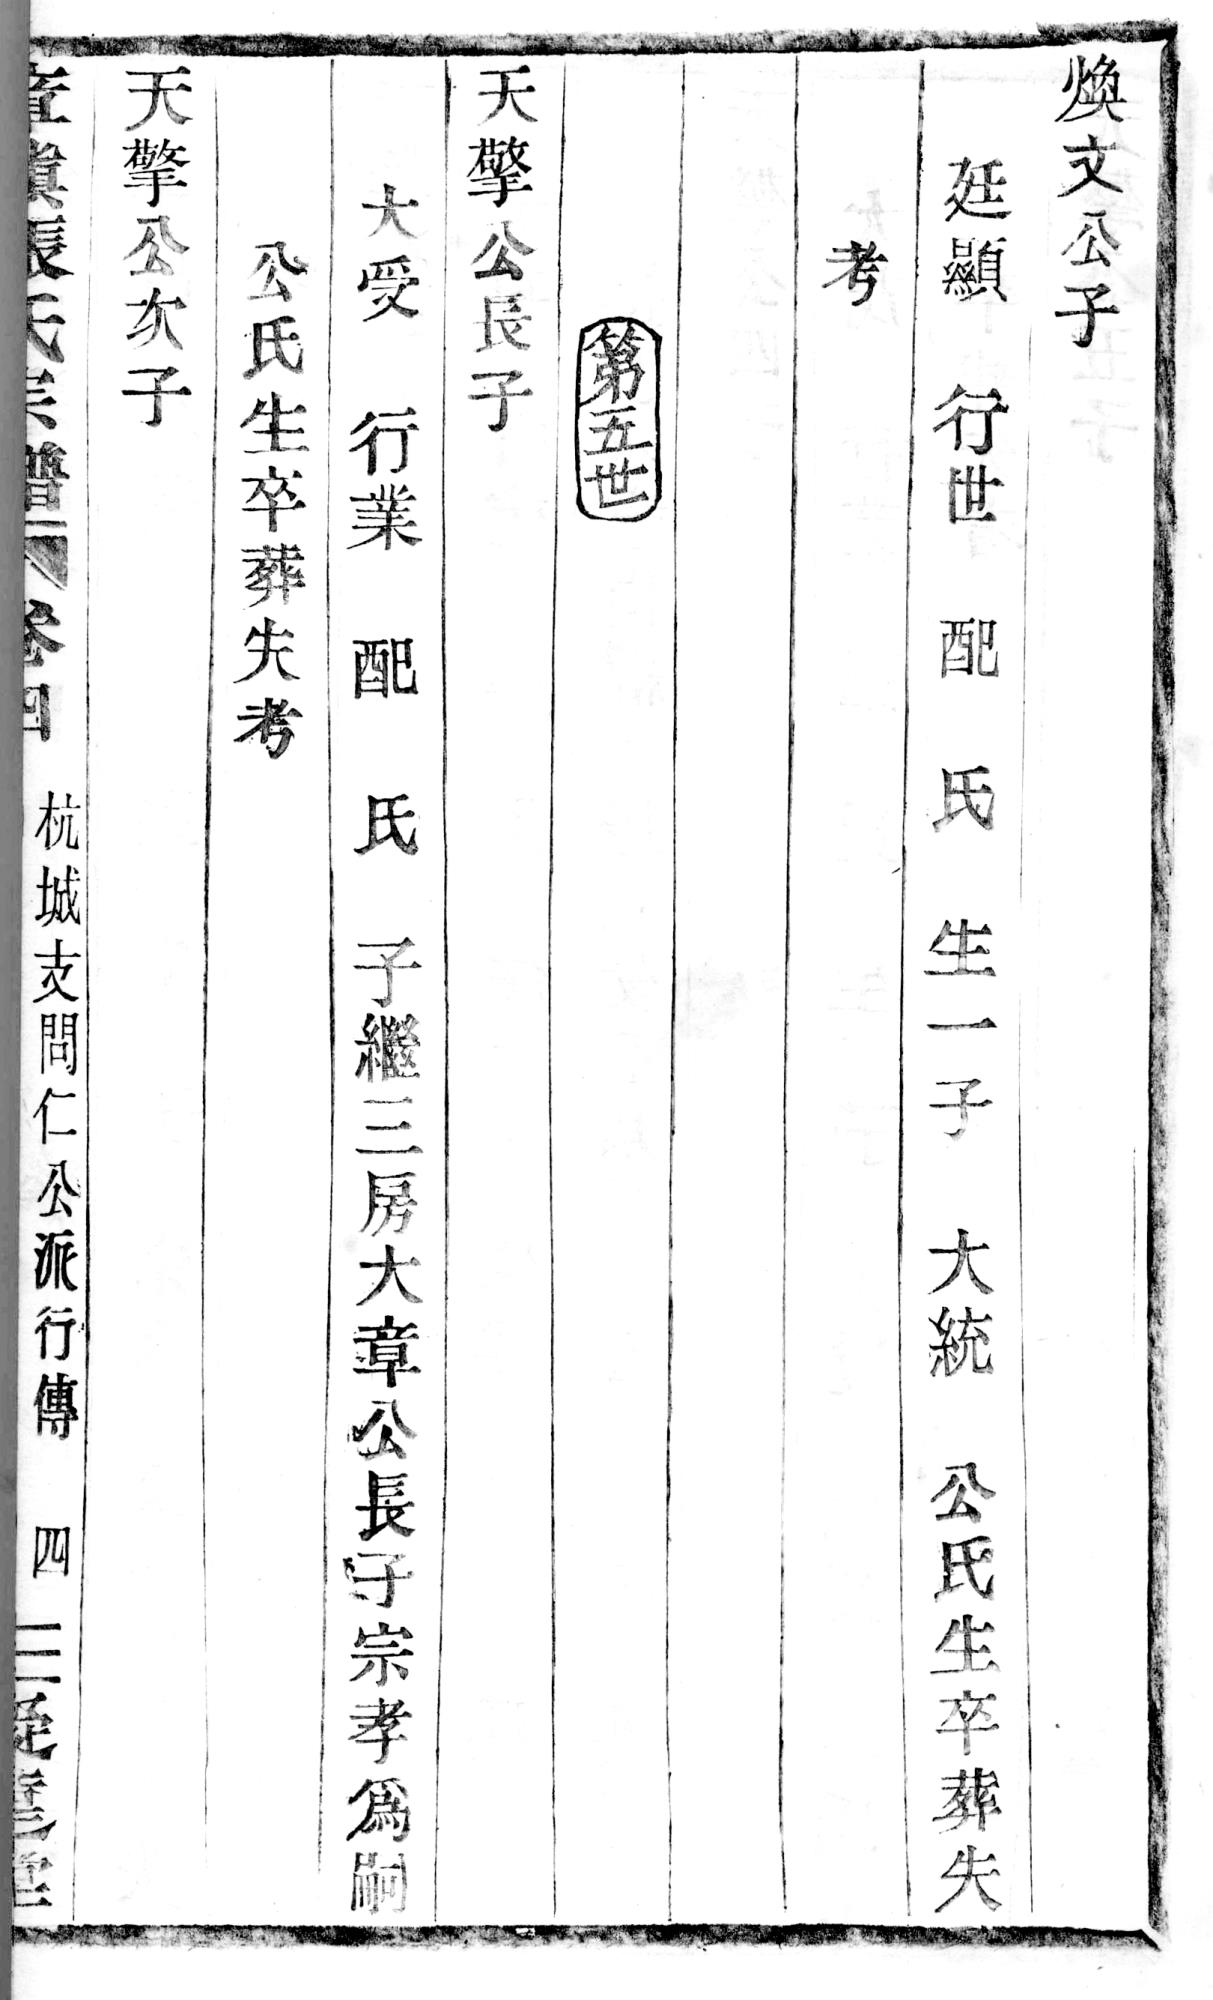 煥文公子
廷顯　行世　配　氏　生一子　大統　公氏生卒葬失
考
第五世
天擎公長子
大受　行業　配　氏　子繼三房大章公長子宗孝爲嗣
公氏生卒葬失考
天擎公次子
張氏宗譜　卷四　杭城支問仁公派行傳　四